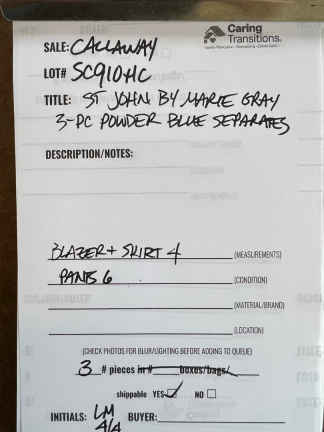 Caring
Transitions.
SALE: CALLAWAY
LOT# SC910HC
TITLE: ST JOHN BY MARIE GRAY
3-PC POWDER BLUE SEPARATES
DESCRIPTION/NOTES:
BLAZER + SKIRT 4 (MEASUREMENTS)
PANTS 6 (CONDITION)
(MATERIAL/BRAND)
(LOCATION)
(CHECK PHOTOS FOR BLUR/LIGHTING BEFORE ADDING TO QUEUE)
3 # pieces in # boxes/bags/
shippable YES NO
INITIALS: LM BUYER:
4/4